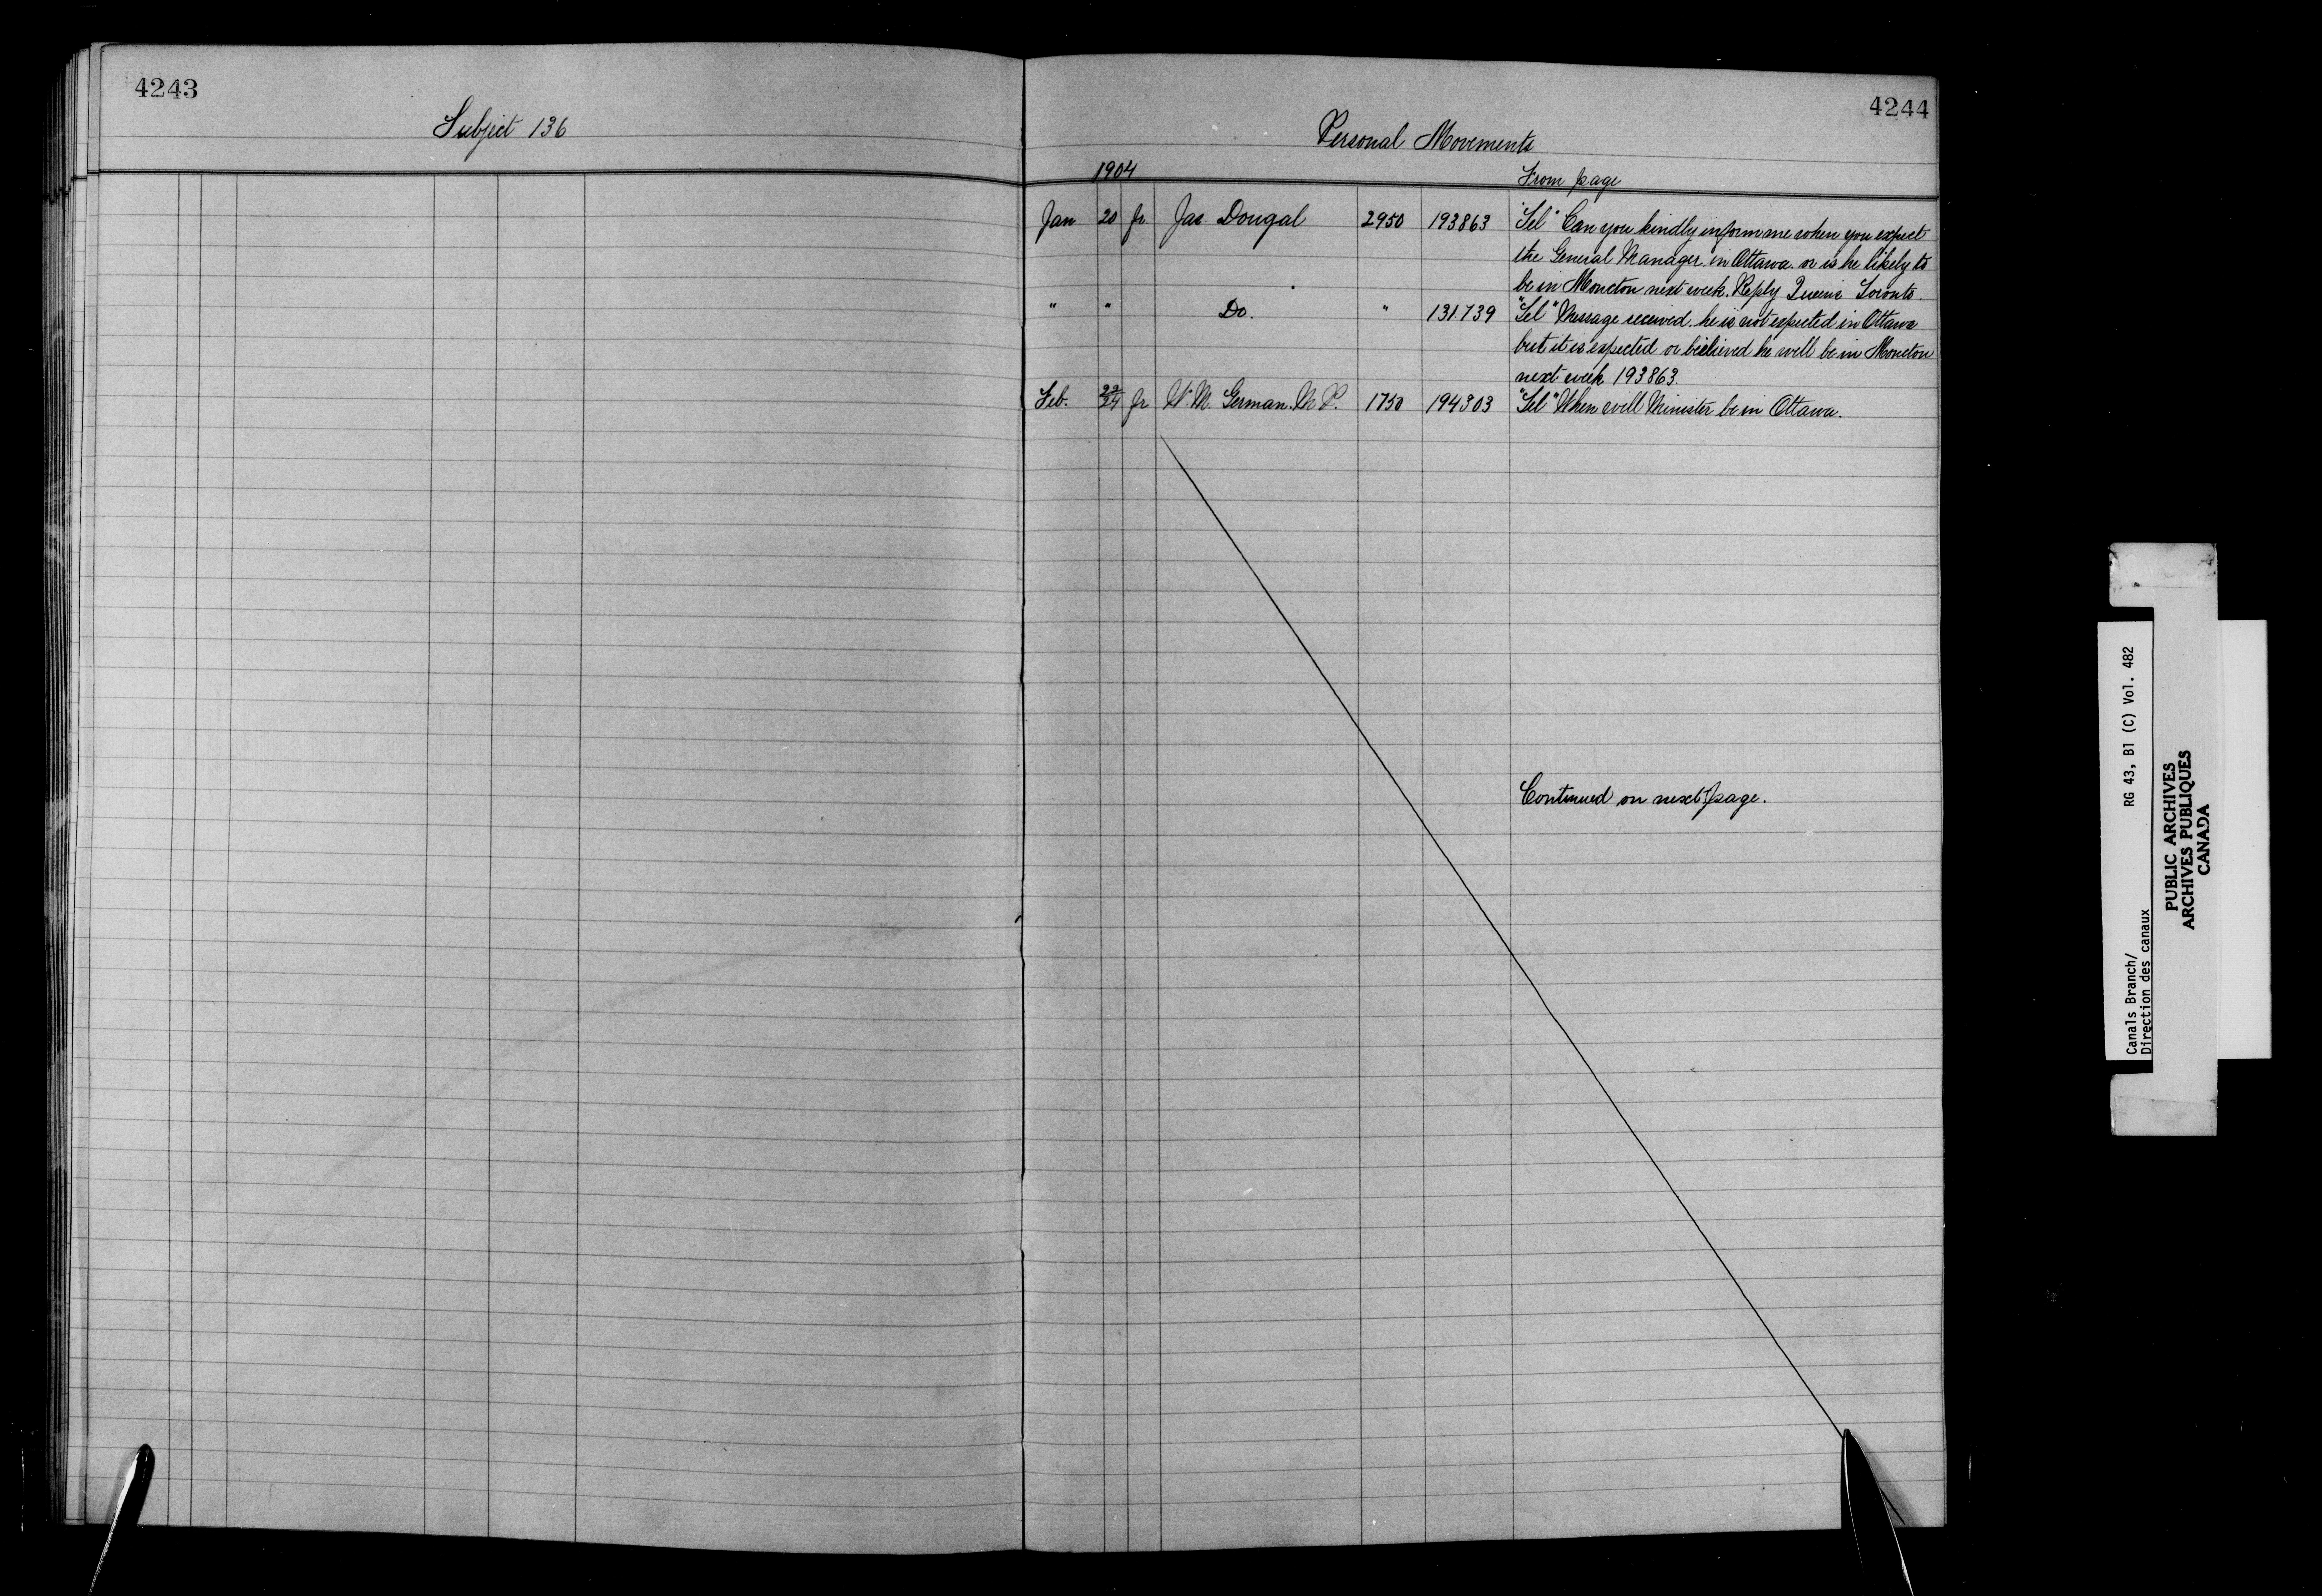 4243
Subject 136
4244
Personal Movements
1904
From page
Jan 20 fr Jas. Dougal 2950 193863 "Tel" Can you kindly inform me when you expect
the General Manager in Ottawa. or is he likely to
be in Moncton next week. Reply Queens Toronto.
" " Do. " 131739 "Tel" Message received. he is not expected in Ottawa
but it is expected or believed he will be in Moncton
next week 193863.
Feb. 23/24 fr W. M. German. M.P. 1750 194303 "Tel" When will Minister be in Ottawa.
Continued on next page.
Canals Branch/ RG 43, B1 (C) Vol. 482
Direction des canaux
PUBLIC ARCHIVES
ARCHIVES PUBLIQUES
CANADA